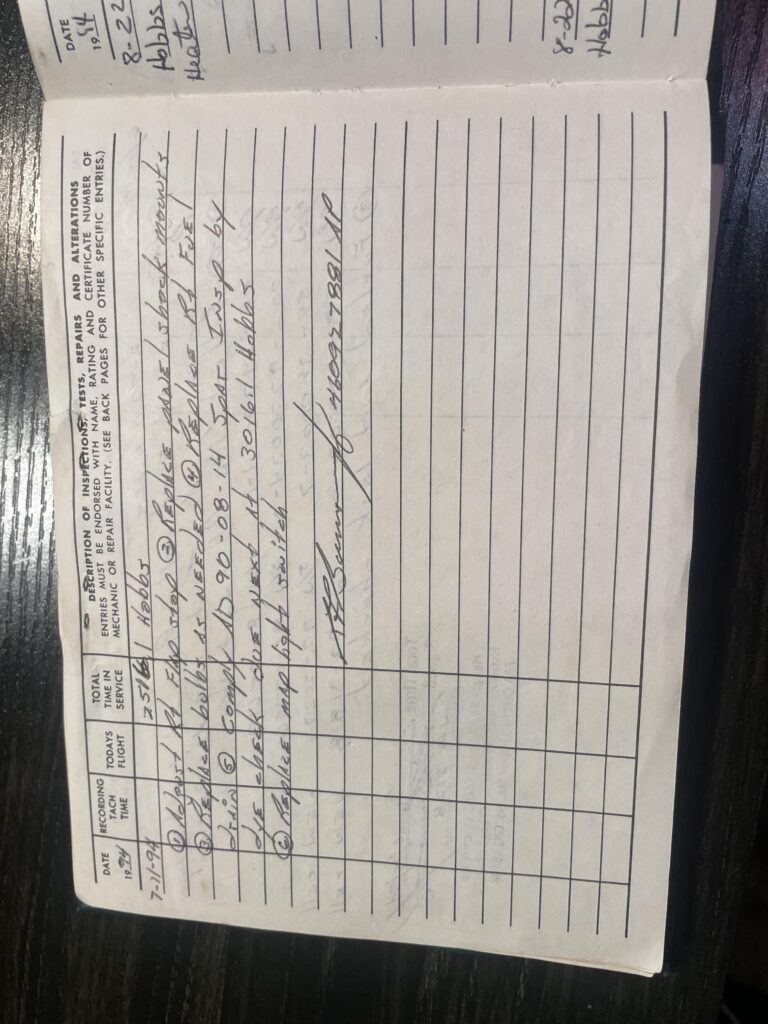 DATE
19 94
RECORDING
TACH
TIME
TODAYS
FLIGHT
TOTAL
TIME IN
SERVICE
DESCRIPTION OF INSPECTIONS, TESTS, REPAIRS AND ALTERATIONS
ENTRIES MUST BE ENDORSED WITH NAME, RATING AND CERTIFICATE NUMBER OF
MECHANIC OR REPAIR FACILITY. (SEE BACK PAGES FOR OTHER SPECIFIC ENTRIES.)
7-11-94 2516.1 Hobbs
① Adjust Rt Flap stop ② Replace panel shock mounts
③ Replace bulbs as needed ④ Replace Rt Fuel
drain ⑤ Comply AD 90-08-14 Spar Insp by
dye check due next at 3016.1 Hobbs
⑥ Replace map light switch
460927881 AP
DATE
19 94
8-22
Hobbs
8-22
Hobb